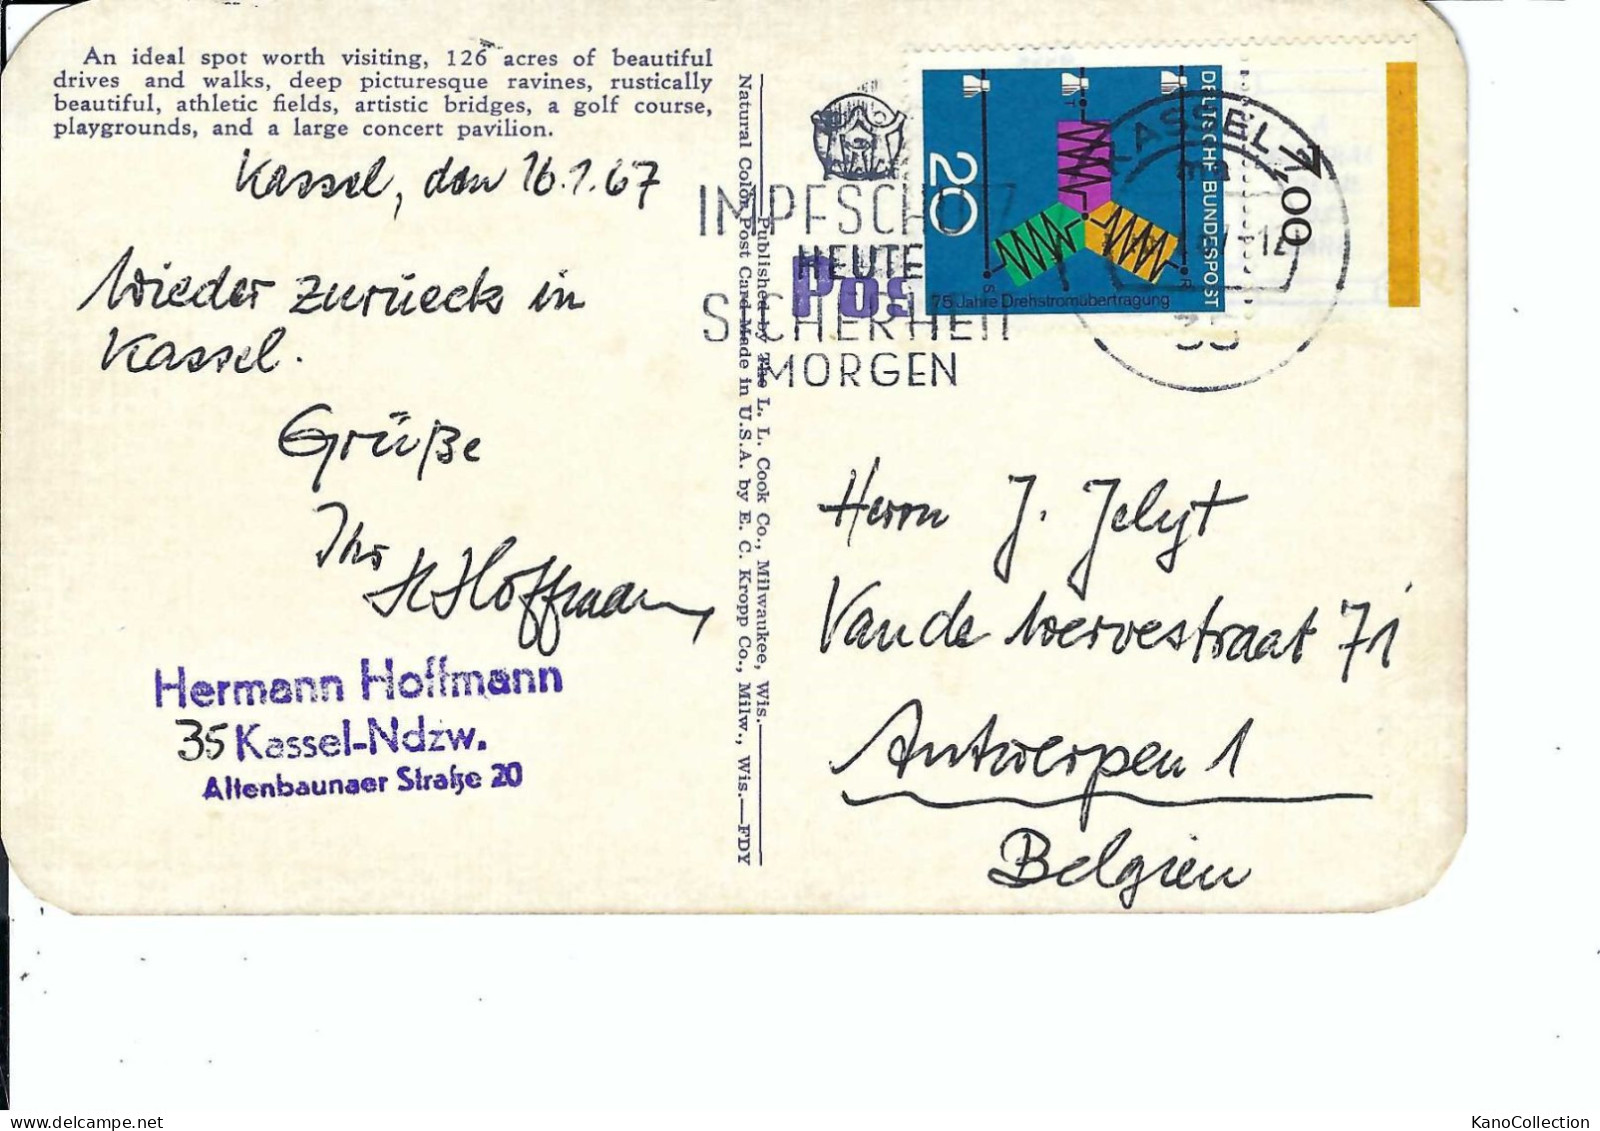 An ideal spot worth visiting, 126 acres of beautiful
drives and walks, deep picturesque ravines, rustically
beautiful, athletic fields, artistic bridges, a golf course,
playgrounds, and a large concert pavilion.
Kassel, den 16.1.67
Wieder zurück in
Kassel.
Grüße
Ihr
H Hoffmann
Hermann Hoffmann
35 Kassel-Ndzw.
Altenbaunaer Straße 20
Natural Color Post Card Made in U.S.A. by E. C. Kropp Co., Milw., Wis.—FDY
Published by The L. L. Cook Co., Milwaukee, Wis.
IMPFSCHUTZ
HEUTE
SICHERHEIT
MORGEN
Pos
20
DEUTSCHE BUNDESPOST
75 Jahre Drehstromübertragung
T
S
R
KASSEL 7
ma
12
35
7,00
Herrn J. Jelyt
Van de Wervestraat 71
Antwerpen 1
Belgien
KanoCollection